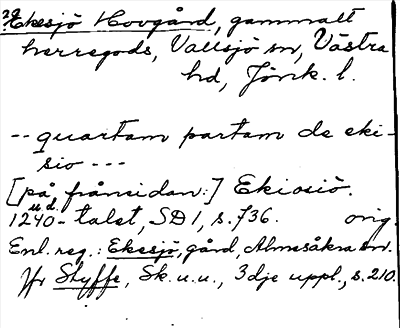 ?Ekesjö Hovgård, gammalt
herregods, Vallsjö sn, Västra
hd, Jönk. l.
-- quartam partam de eki-
sio ---
[på frånsidan:] Ekiosiö.
u d.
1240-talet, SD 1, s. 736. orig.
Enl. reg.: Ekesjö, gård, Almesåkra sn.
Jfr Styffe, Sk. u. u., 3dje uppl., s. 210.